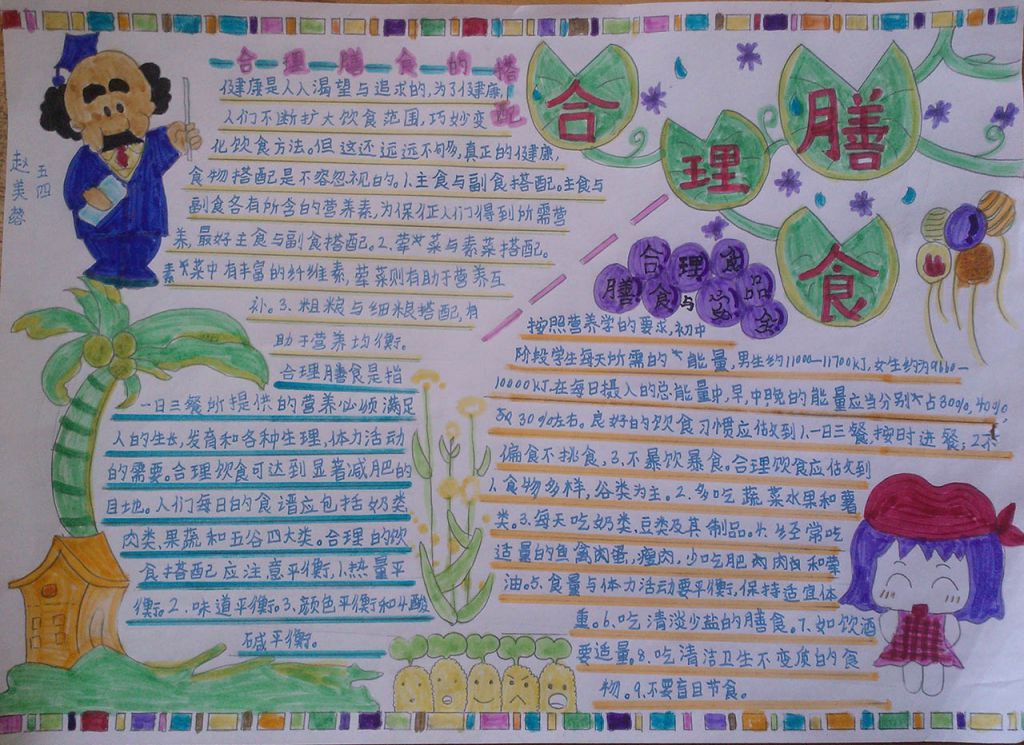 合理膳食
合理膳食的搭配
五四
赵美蓉
健康是人人渴望与追求的,为了健康,
人们不断扩大饮食范围,巧妙变
化饮食方法。但这还远远不够,真正的健康,
食物搭配是不容忽视的。1.主食与副食搭配。主食与
副食各有所含的营养素,为保证人们得到所需营
养,最好主食与副食搭配。2.荤菜与素菜搭配。
素菜中有丰富的纤维素,荤菜则有助于营养互
补。3.粗粮与细粮搭配,有
助于营养均衡。
合理膳食是指
一日三餐所提供的营养必须满足
人的生长,发育和各种生理,体力活动
的需要。合理饮食可达到显著减肥的
目地。人们每日的食谱应包括奶类,
肉类、果蔬和五谷四大类。合理的饮
食搭配应注意平衡,1.热量平
衡。2.味道平衡。3.颜色平衡和4.酸
碱平衡。
合理膳食与食品安全
按照营养学的要求,初中
阶段学生每天所需的能量,男生约11000—11700kJ,女生约为9660—
10000kJ.在每日摄入的总能量中,早,中晚的能量应当分别占30%,40%,
30%左右。良好的饮食习惯应做到1.一日三餐,按时进餐;2.不
偏食不挑食,3.不暴饮暴食。合理饮食应做到
1.食物多样,谷类为主。2.多吃蔬菜水果和薯
类。3.每天吃奶类、豆类及其制品。4.经常吃
适量的鱼禽肉蛋,瘦肉,少吃肥肉和荤
油。5.食量与体力活动要平衡,保持适宜体
重。6.吃清淡少盐的膳食。7.如饮酒
要适量。8.吃清洁卫生不变质的食
物。9.不要盲目节食。